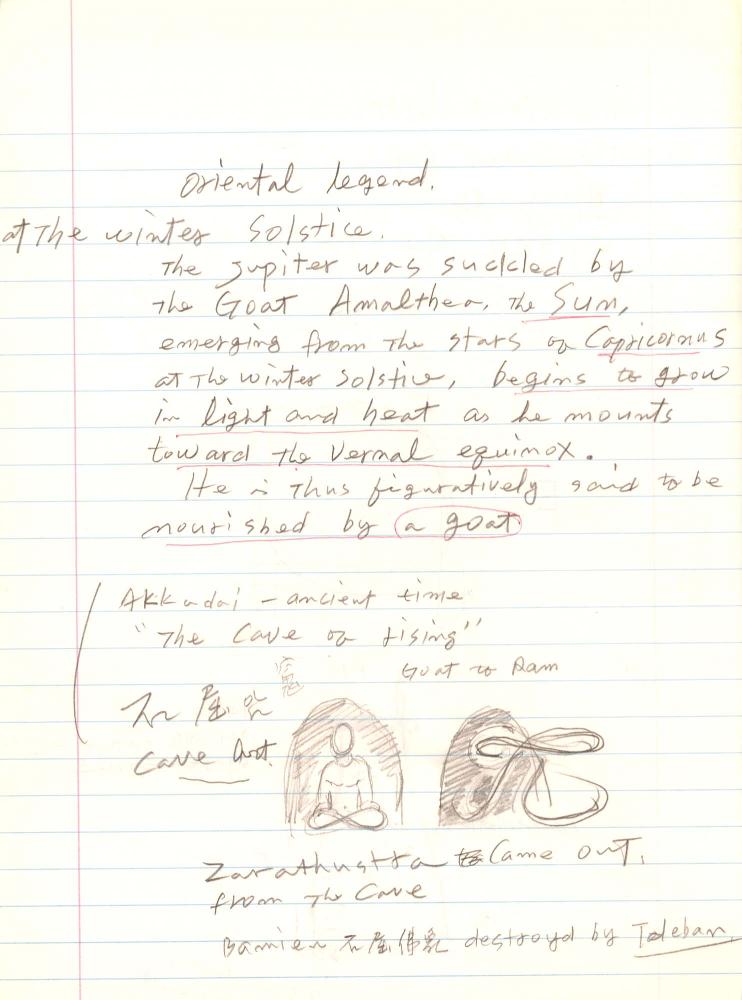 Oriental legend.
at The winter Solstice.
The Jupiter was suckled by
the Goat Amalthea, the Sun,
emerging from the stars of Capricornus
at The winter solstice, begins to grow
in light and heat as he mounts
toward the Vernal equinox.
He is Thus figuratively said to be
nourished by a goat
Akkadai – ancient time
"The Cave of rising"
Goat to Ram
石 居 안
Cave Art.
Zarathustra Came out.
from The Cave
Bamien 石居佛象 destroyd by Taleban.